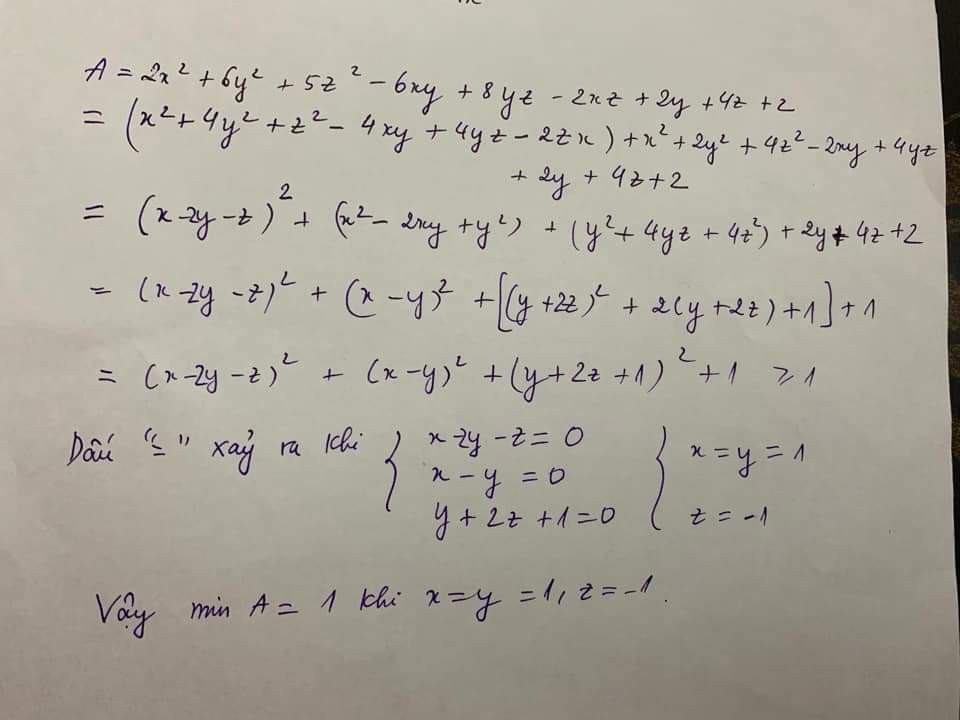 A = 2x² + 6y² + 5z² - 6xy + 8yz - 2xz + 2y + 4z + 2
= (x² + 4y² + z² - 4xy + 4yz - 2zx) + x² + 2y² + 4z² - 2xy + 4yz
+ 2y + 4z + 2
= (x - 2y - z)² + (x² - 2xy + y²) + (y² + 4yz + 4z²) + 2y + 4z + 2
= (x - 2y - z)² + (x - y)² + [(y + 2z)² + 2(y + 2z) + 1] + 1
= (x - 2y - z)² + (x - y)² + (y + 2z + 1)² + 1 ⩾ 1
Dấu "=" xảy ra khi { x - 2y - z = 0
x - y = 0
y + 2z + 1 = 0
{ x = y = 1
z = -1
Vậy min A = 1 khi x = y = 1, z = -1.